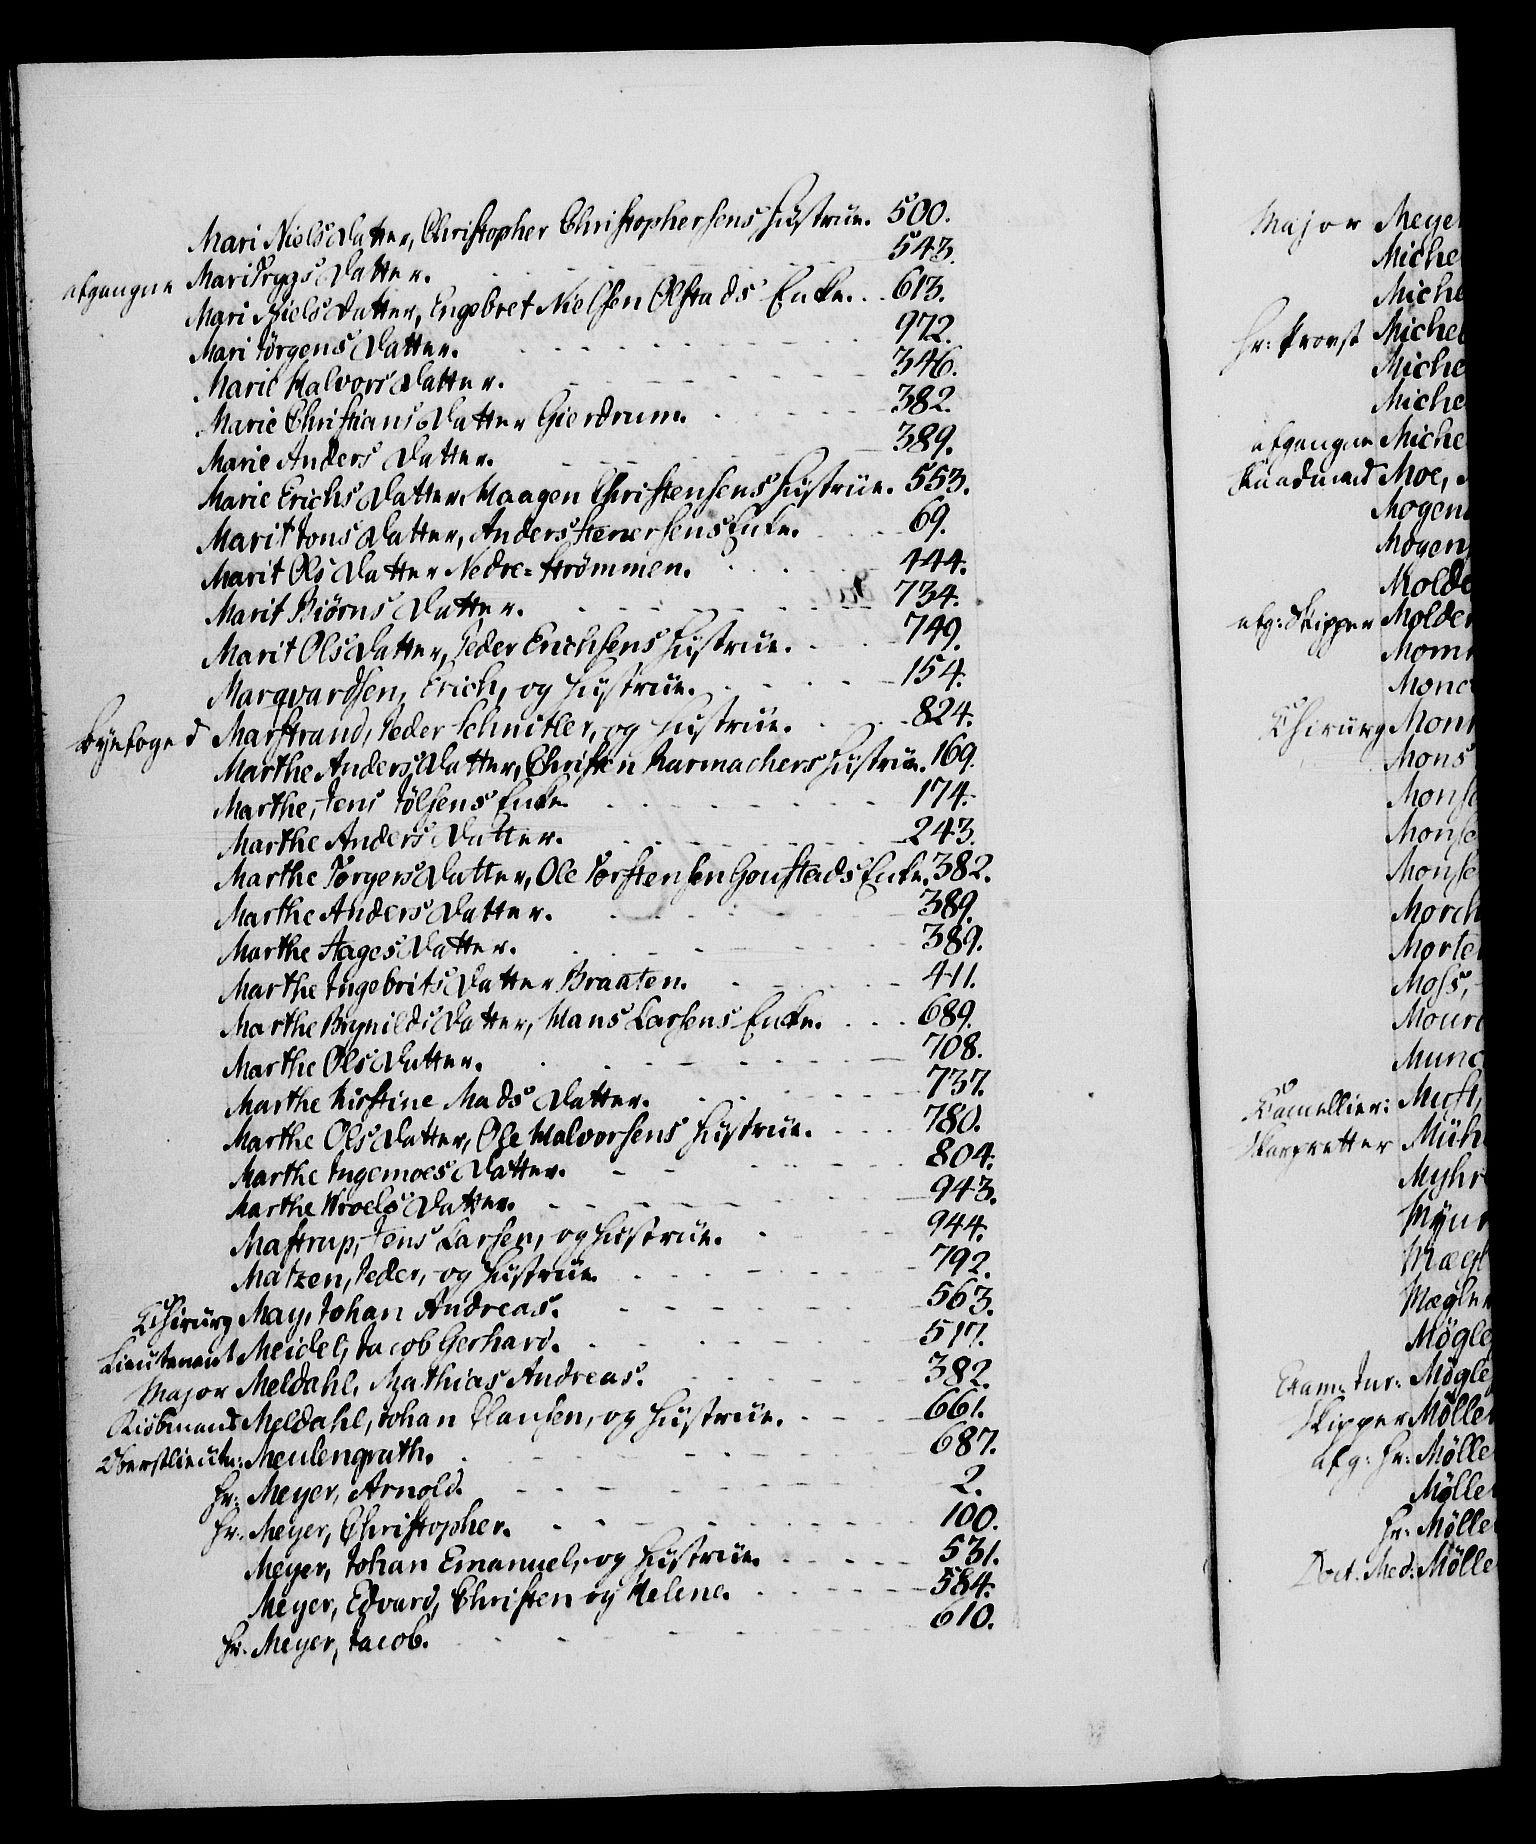 Mari Niels Datter, Christopher Christophersens Hustrue. 500.
afgangne Mari Trygs Datter. 543.
Mari Niels Datter, Engebret Nielsen Olstads Enke. 613.
Mari Jørgens Datter. 972.
Marie Halvors Datter. 346.
Marie Christians Datter Gierdrum. 382.
Marie Anders Datter. 389.
Marie Erichs Datter, Haagen Christensens Hustrue. 553.
Marit Jons Datter, Anders Stenersens Enke. 69.
Marit Ols Datter Nedre-Strømmen. 444.
Marit Biörns Datter. 734.
Marit Ols Datter, Peder Erichsens Hustrue. 749.
Marqvardsen, Erich, og Hustrue. 154.
Byefoged Marstrand, Peder Schnitler, og Hustrue. 824.
Marthe Anders Datter, Christen Karmachers Hustrue. 169.
Marthe, Jens Jölsens Enke 174.
Marthe Anders Datter. 243.
Marthe Törgers Datter, Ole Torstensen Goustads Enke. 382.
Marthe Anders Datter. 389.
Marthe Aages Datter. 389.
Marthe Ingebrits Datter Braaten. 411.
Marthe Brynilds Datter, Hans Larsens Enke. 689.
Marthe Ols Datter. 708.
Marthe Kirstine Mads Datter. 737.
Marthe Ols Datter, Ole Halvorsens Hustrue. 780.
Marthe Ingemoes Datter. 804.
Marthe Hroels Datter. 943.
Mastrup, Jens Larsen, og Hustrue. 944.
Matzen, Peder, og Hustrue. 792.
Chirurg May, Johan Andreas. 563.
Lieutenant Meidel, Jacob Gerhard. 517.
Major Meldahl, Mathias Andreas. 382.
Kiöbmand Meldahl, Johan Clausen, og Hustrue. 661.
Oberstlieutn: Meulengrath. 687.
Hr: Meyer, Arnold. 2.
Hr. Meyer, Christopher. 100.
Meyer, Johan Emanuel, og Hustrue. 531.
Meyer, Edvard, Christen og Helene. 584.
Hr. Meyer, Jacob. 610.
Major Meye
Miche
Miche
Hr: Provst Michel
Miche
Miche
afgangne Miche
Moe,
Mogen
Mogen
Molde
afg: Skipper Molde
Mom
Mon
Chirurg Mon
Mons
Mons
Monse
Monse
Morch
Morte
Moss,
Mour
Mun
Cancellier: Must,
Skarpretter Müh
Myhr
Myn
Mægl
Mægle
Mögle
Exam: Jur: Mögle
Skipper Mölle
afg: Hr: Mölle
Mölle
Hr: Mölle
Doct. Med: Mölle